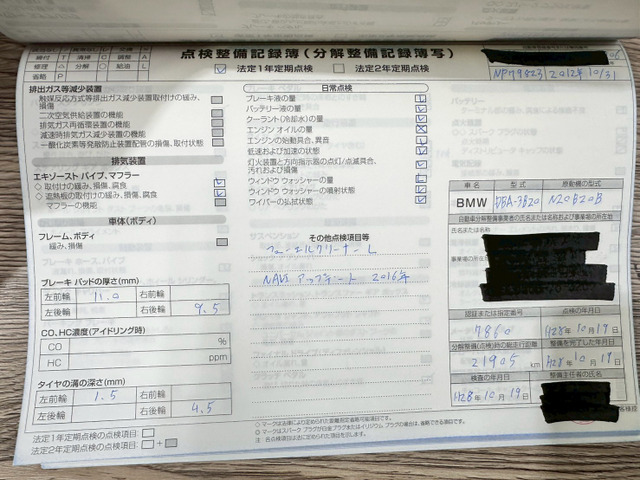 点検整備記録簿(分解整備記録簿写)
締付 T 清掃 C 調整 A
修理 △ 分解 ○ 給油 L
省略 P
法定1年定期点検 法定2年定期点検
NP79823 2012年 10/31
排出ガス等減少装置
触媒反応方式等排出ガス減少装置取付けの緩み、
損傷
二次空気供給装置の機能
排気ガス再循環装置の機能
減速時排気ガス減少装置の機能
一酸化炭素等発散防止装置配管の損傷、取付状態
排気装置
エキゾースト パイプ、マフラー
◇ 取付けの緩み、損傷、腐食
◇ 遮熱板の取付けの緩み、損傷、腐食
マフラーの機能
車体(ボディ)
フレーム、ボディ
緩み、損傷
ブレーキ パッドの厚さ(mm)
左前輪 11.0 右前輪
左後輪 右後輪 9.5
CO、HC濃度(アイドリング時)
CO %
HC ppm
タイヤの溝の深さ(mm)
左前輪 1.5 右前輪
左後輪 右後輪 4.5
法定1年定期点検の点検項目:
法定2年定期点検の点検項目: +
日常点検
ブレーキ液の量
バッテリー液の量
クーラント(冷却水)の量
エンジン オイルの量
エンジンの始動具合、異音
低速および加速の状態
灯火装置と方向指示器の点灯/点滅具合、
汚れおよび損傷
ウィンドウ ウォッシャーの量
ウィンドウ ウォッシャーの噴射状態
ワイパーの払拭状態
その他点検項目等
フューエルクリーナー L
NAVI アップデート 2016年
◇マークは法律により定められた距離測定省略可能項目です。
注:各点検項目は法に定められた項目を示します。
車名 型式 原動機の型式
BMW DBA-3B20 N20B20B
自動車分解整備事業者の氏名または名称および事業場の所在
氏名または名称
認証または指定番号 点検の年月日
7860 H28年 10月 19日
分解整備(点検)時の総走行距離 整備を完了した年月日
21905 km H28年 10月 19日
検査の年月日 整備主任者の氏名
H28年 10月 19日
客様用